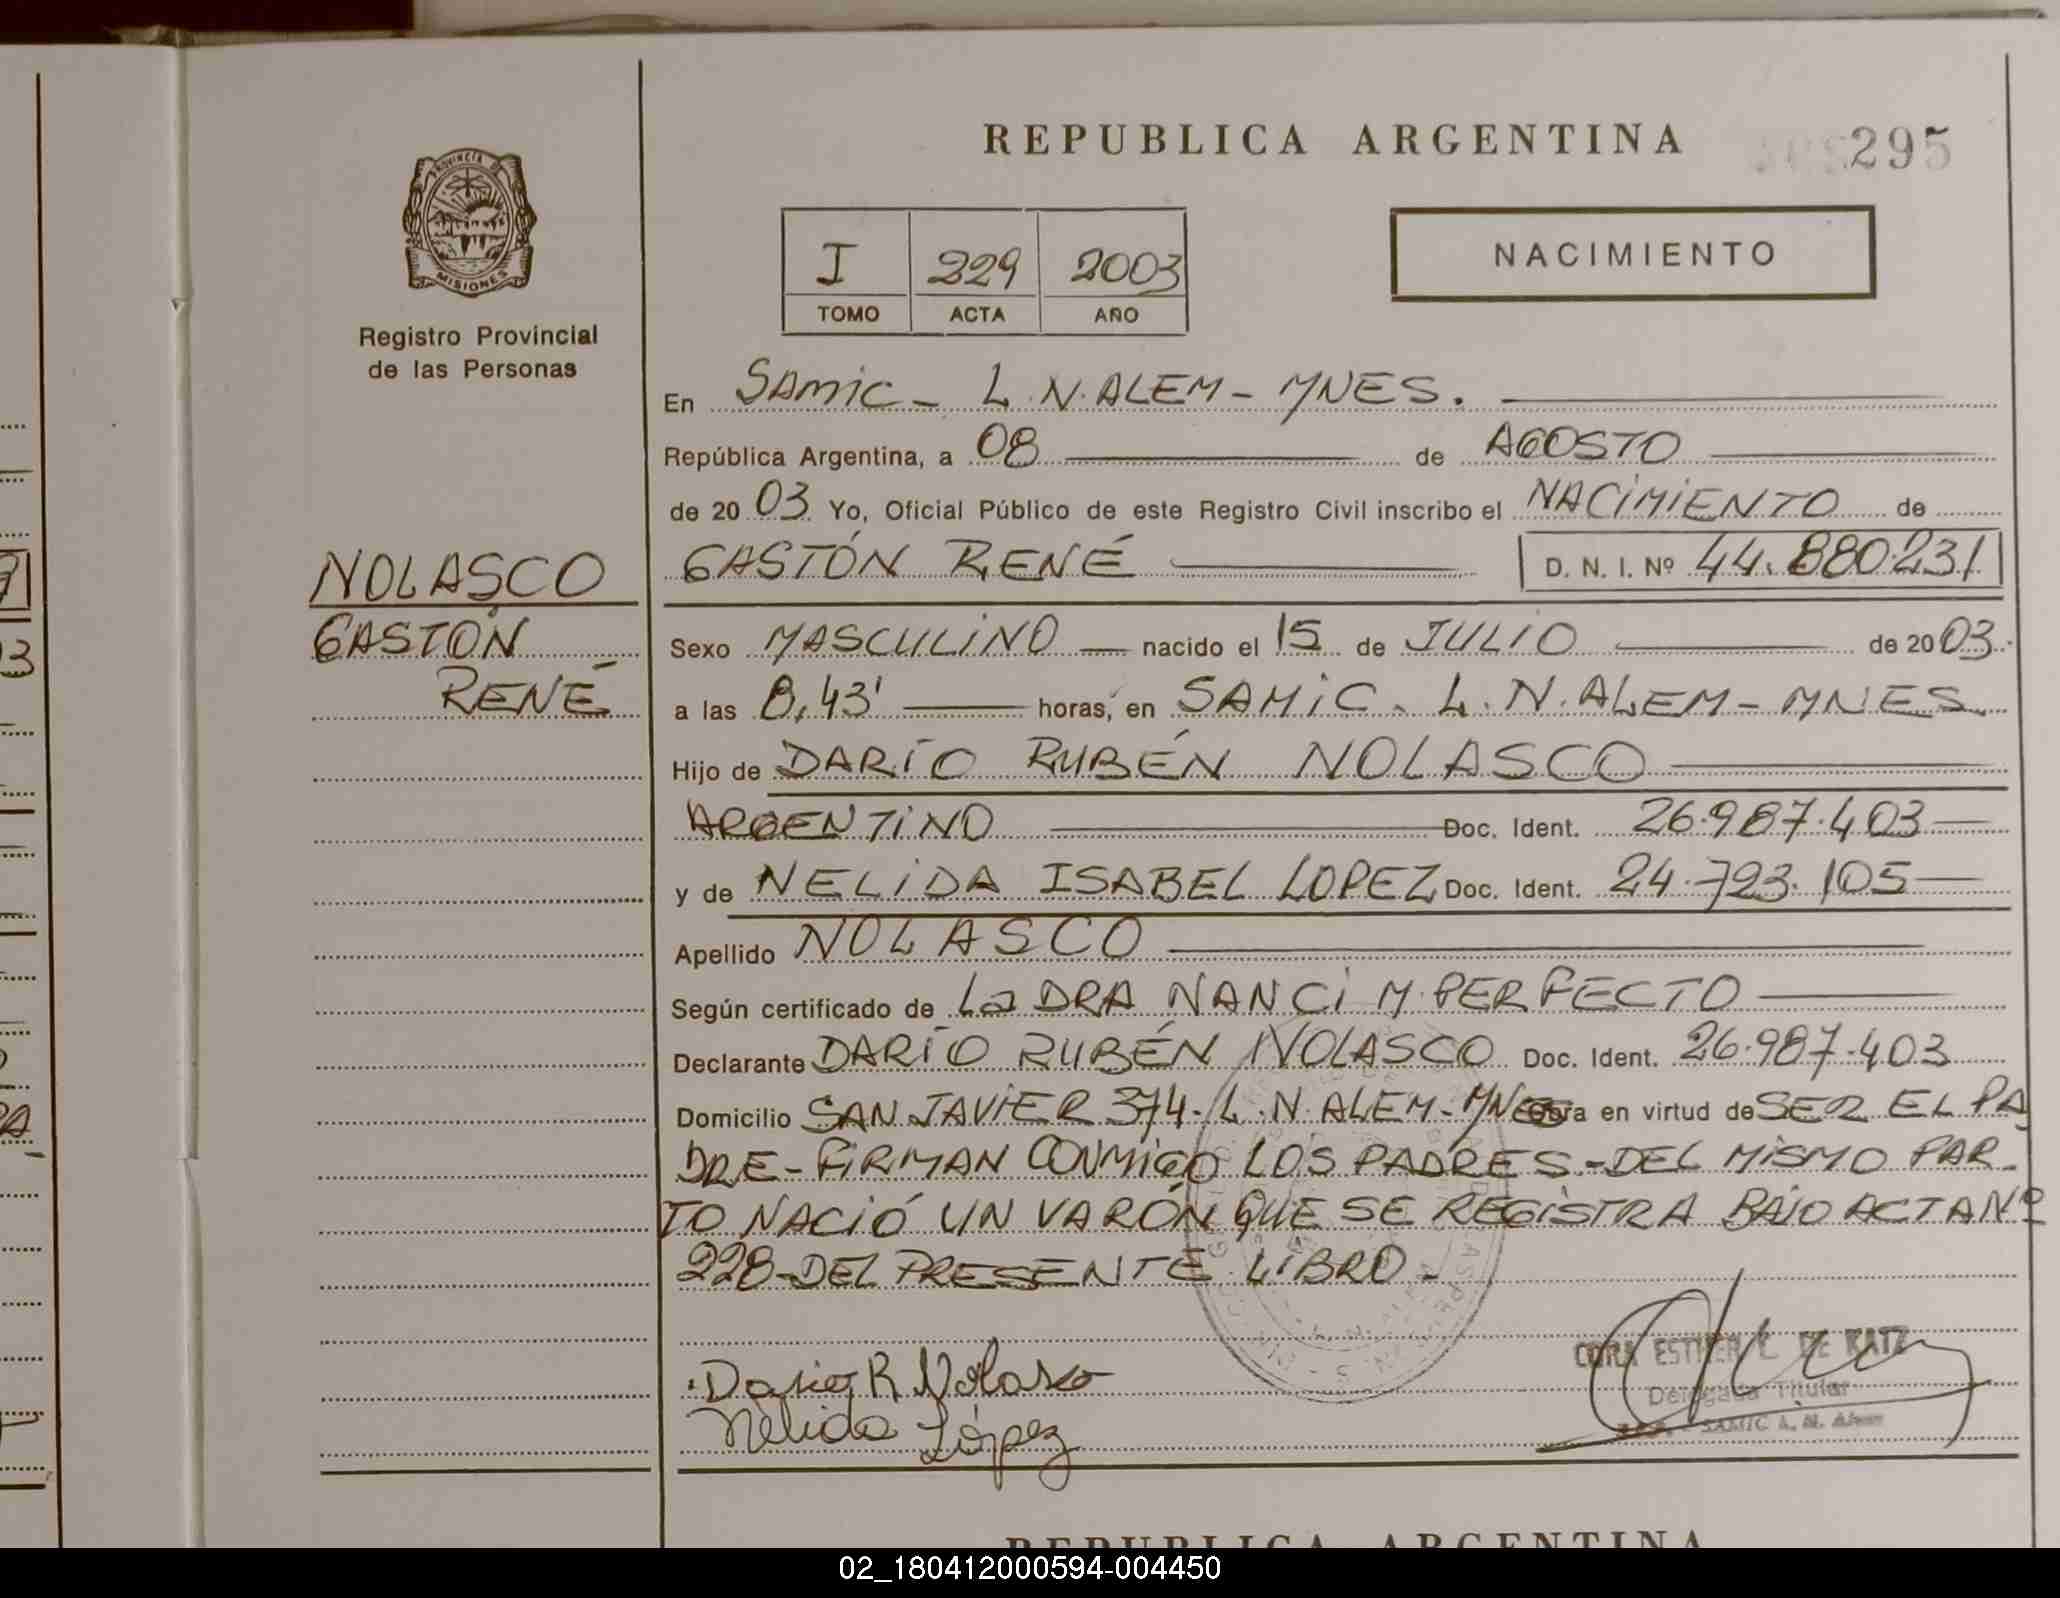 REPUBLICA ARGENTINA
295
PROVINCIA DE
MISIONES
Registro Provincial
de las Personas
I 229 2003
TOMO ACTA AÑO
NACIMIENTO
En SAMIC - L.N.ALEM - MNES.
República Argentina, a 08 de AGOSTO
de 2003 Yo, Oficial Público de este Registro Civil inscribo el NACIMIENTO de
GASTÓN RENÉ D. N. I. Nº 44.880.231
NOLASCO
GASTÓN
RENÉ
Sexo MASCULINO nacido el 15 de JULIO de 2003.
a las 8,43' horas, en SAMIC - L.N.ALEM - MNES
Hijo de DARÍO RUBÉN NOLASCO
ARGENTINO Doc. Ident. 26.987.403
y de NELIDA ISABEL LOPEZ Doc. Ident. 24.723.105
Apellido NOLASCO
Según certificado de La DRA NANCI M. PERFECTO
Declarante DARÍO RUBÉN NOLASCO Doc. Ident. 26.987.403
Domicilio SAN JAVIER 374 - L.N.ALEM - MNES en virtud de SER EL PA
DRE - FIRMAN CONMIGO LOS PADRES - DEL MISMO PAR-
TO NACIÓ UN VARÓN QUE SE REGISTRA BAJO ACTA Nº
228 - DEL PRESENTE LIBRO -
Dario R Nolasco
Nelida López
CORA ESTHER L. DE KATZ
Delegada Titular
SAMIC L. N. Alem
REPUBLICA ARGENTINA
02_180412000594-004450